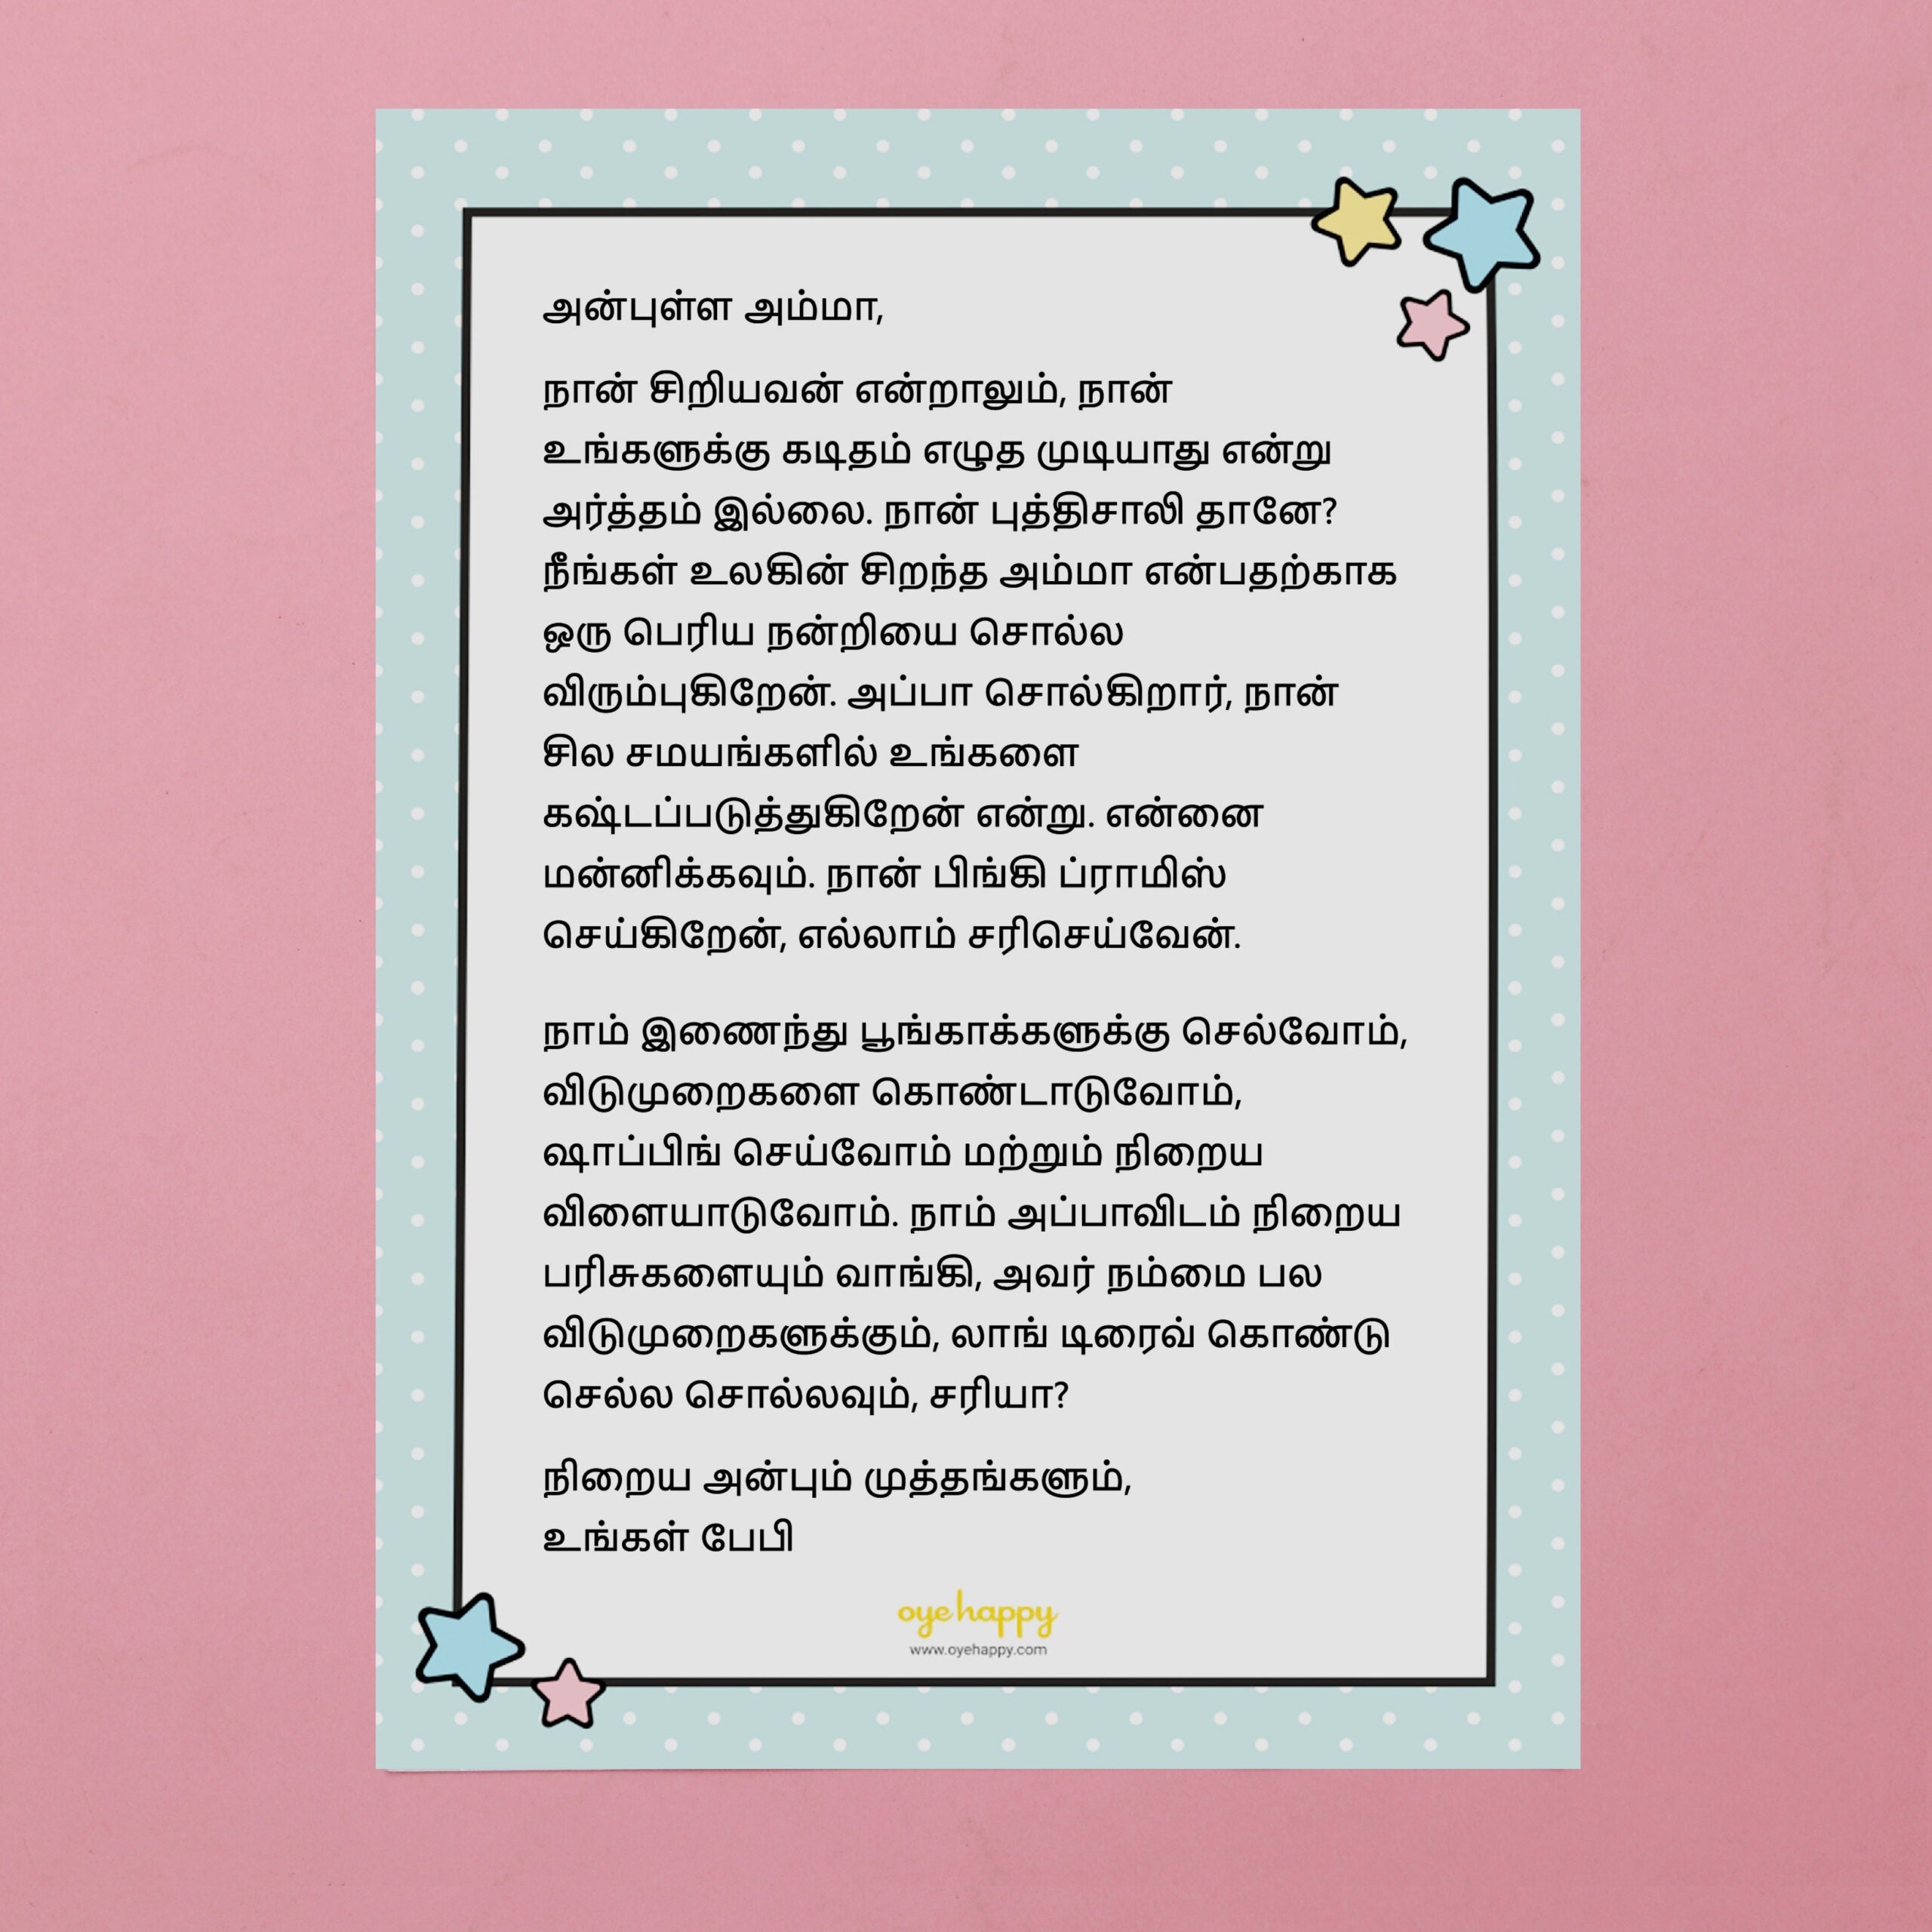 அன்புள்ள அம்மா,
நான் சிறியவன் என்றாலும், நான்
உங்களுக்கு கடிதம் எழுத முடியாது என்று
அர்த்தம் இல்லை. நான் புத்திசாலி தானே?
நீங்கள் உலகின் சிறந்த அம்மா என்பதற்காக
ஒரு பெரிய நன்றியை சொல்ல
விரும்புகிறேன். அப்பா சொல்கிறார், நான்
சில சமயங்களில் உங்களை
கஷ்டப்படுத்துகிறேன் என்று. என்னை
மன்னிக்கவும். நான் பிங்கி ப்ராமிஸ்
செய்கிறேன், எல்லாம் சரிசெய்வேன்.
நாம் இணைந்து பூங்காக்களுக்கு செல்வோம்,
விடுமுறைகளை கொண்டாடுவோம்,
ஷாப்பிங் செய்வோம் மற்றும் நிறைய
விளையாடுவோம். நாம் அப்பாவிடம் நிறைய
பரிசுகளையும் வாங்கி, அவர் நம்மை பல
விடுமுறைகளுக்கும், லாங் டிரைவ் கொண்டு
செல்ல சொல்லவும், சரியா?
நிறைய அன்பும் முத்தங்களும்,
உங்கள் பேபி
oye happy
www.oyehappy.com